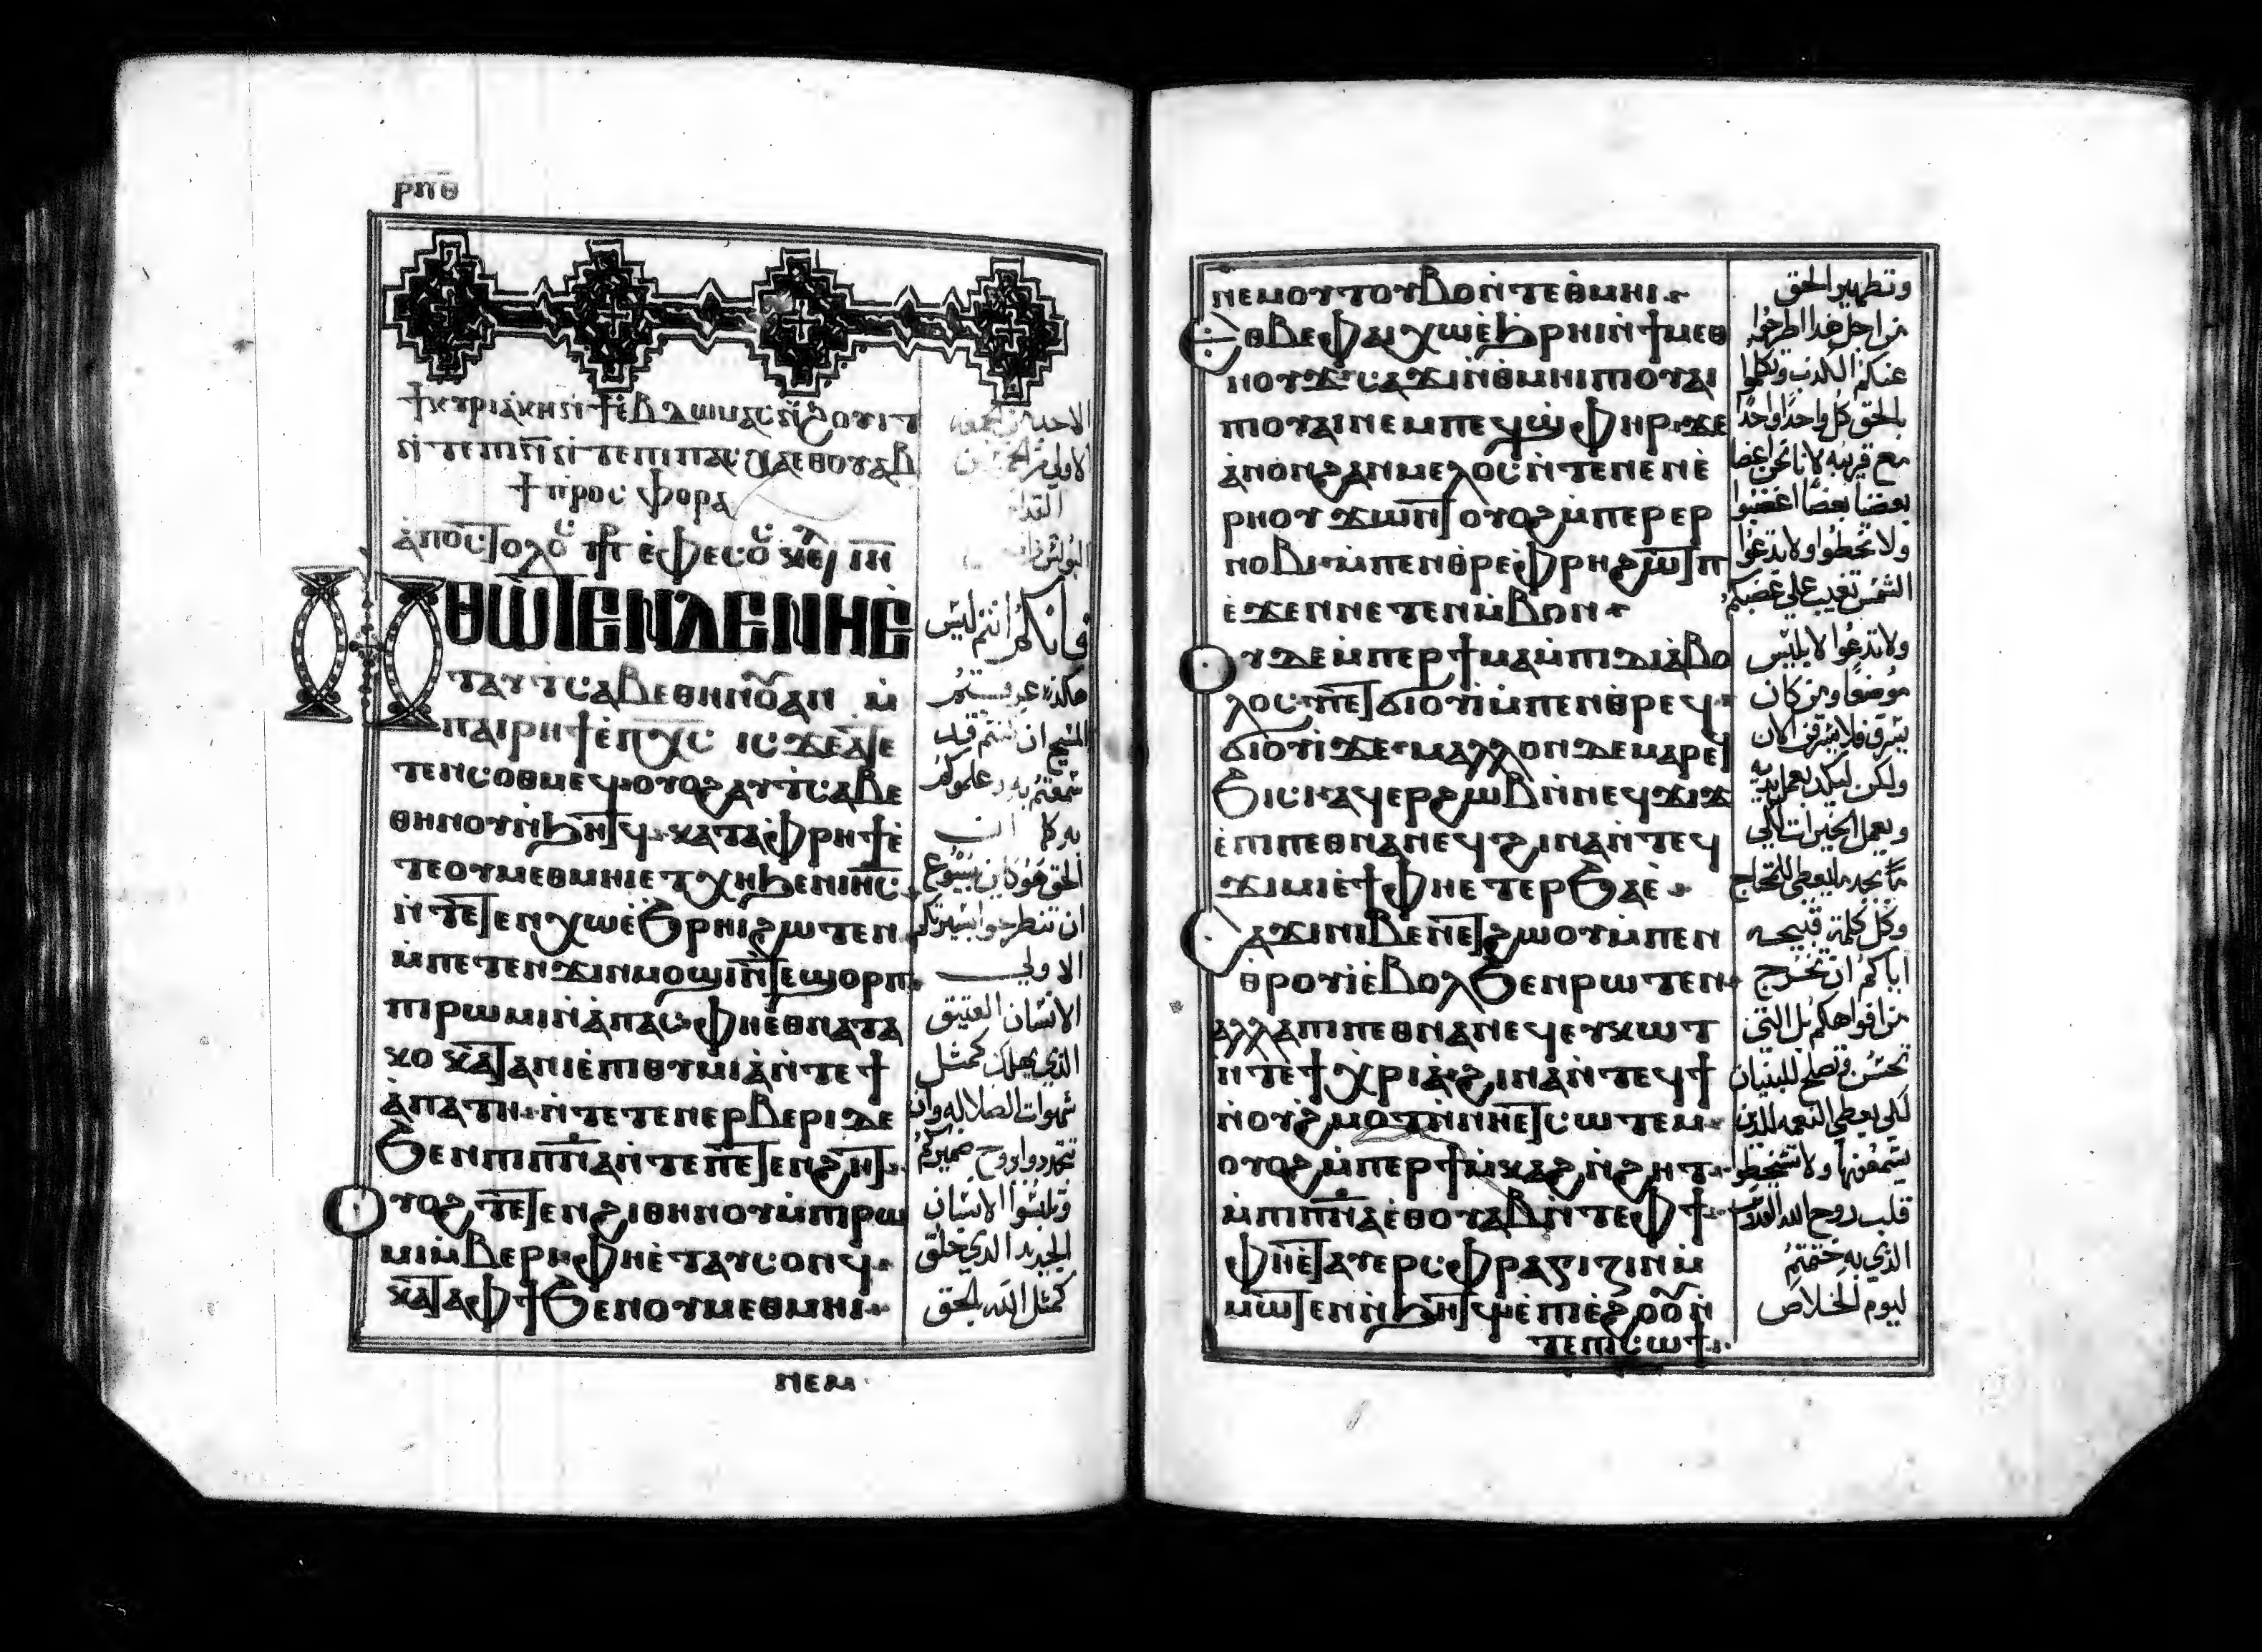 ⲣⲡⲑ
ϯⲕⲩⲣⲓⲁⲕⲏ ⲛ̀ϯⲉ̀ⲃⲇⲱⲙⲁⲥ ⲛ̀ϩⲟⲩⲓⲧ
ⲛ̀ⲧⲉ ⲡⲓⲛ̄ ⲛ̀ⲧⲉ ⲡⲓⲡⲁⲥⲭⲁ ⲉⲑⲟⲩⲁⲃ
ϯⲡⲣⲟⲥⲫⲟⲣⲁ
ⲁ̀ⲡⲟⲥⲧⲟⲗⲟⲥ ⲉ̀ⲫⲉⲥⲟⲥ
ⲛ̀ⲑⲱⲧⲉⲛ ⲇⲉ ⲛⲏⲉ̀
ⲧⲁⲩⲧⲥⲁⲃⲉ ⲑⲏⲛⲟⲩ ⲁⲛ ⲙ̀
ⲡⲁⲓⲣⲏϯ ⲉ̀ⲡⲭ̅ⲥ̅ ⲓⲥ ϫⲉ ⲁ̀ⲧⲉ
ⲧⲉⲛⲥⲟⲑⲙⲉϥ ⲟⲩⲟϩ ⲁⲩⲧⲥⲁⲃⲉ
ⲑⲏⲛⲟⲩ ⲛ̀ϧⲏⲧϥ ⲕⲁⲧⲁ ⲫⲣⲏϯ ⲉ̀
ⲧⲉ ⲟⲩⲙⲉⲑⲙⲏⲓ ⲉⲧⲭⲏ ϧⲉⲛ ⲓⲏ̅ⲥ̅
ⲛ̀ⲧⲉⲧⲉⲛⲭⲱ ⲉ̀ϧⲣⲏⲓ ϩⲱⲧⲉⲛ
ⲙ̀ⲡⲉⲧⲉⲛϫⲓⲛⲙⲟϣⲓ ⲛ̀ⲧⲉ ϣⲟⲣⲡ
ⲡⲓⲣⲱⲙⲓ ⲛ̀ⲁ̀ⲡⲁⲥ ⲫⲏⲉ̀ⲑⲛⲁⲧⲁ
ⲕⲟ ⲕⲁⲧⲁ ⲛⲓⲉ̀ⲡⲓⲑⲩⲙⲓⲁ̀ ⲛ̀ⲧⲉ ϯ
ⲁ̀ⲡⲁⲧⲏ ⲛ̀ⲧⲉⲧⲉⲛⲉⲣⲃⲉⲣⲓ ⲇⲉ
ϧⲉⲛ ⲡⲓⲡ̅ⲛ̅ⲁ̅ ⲛ̀ⲧⲉ ⲡⲉⲧⲉⲛϩⲏⲧ
ⲟⲩⲟϩ ⲧⲉⲧⲉⲛϩⲓ ⲑⲏⲛⲟⲩ ⲙ̀ⲡⲓⲣⲱ
ⲙⲓ ⲙ̀ⲃⲉⲣⲓ ⲫⲏⲉ̀ⲧⲁⲩⲥⲟⲛϥ
ⲕⲁⲧⲁ ⲫϯ ϧⲉⲛ ⲟⲩⲙⲉⲑⲙⲏⲓ
ⲛⲉⲙ
فانكم انتم ليس
هكذا عرفتم
المسيح ان كنتم قد
سمعتم به وعلموكم
به كما ان
الحق هو كاين بيسوع
ان تنطرحوا بسيرتكم
الاولي
الانسان العتيق
الذي يهلك كمثل
شهوات الضلاله وان
تتجددوا بروح ضميركم
وتلبسوا الانسان
الجديد الذي خلق
كمثل الله بالحق
ⲛⲉⲙ ⲟⲩⲧⲟⲩⲃⲟ ⲛ̀ⲧⲉ ⲑⲙⲏⲓ
ⲉⲑⲃⲉ ⲫⲁⲓ ⲭⲱ ⲉ̀ϧⲣⲏⲓ ⲛ̀ϯⲙⲉⲑ
ⲛⲟⲩϫ ⲥⲁϫⲓ ⲛ̀ⲑⲙⲏⲓ ⲡⲓⲟⲩⲁⲓ
ⲡⲓⲟⲩⲁⲓ ⲛⲉⲙ ⲡⲉϥϣ̀ⲫⲏⲣ ϫⲉ
ⲁ̀ⲛⲟⲛ ϩⲁⲛⲙⲉⲗⲟⲥ ⲛ̀ⲧⲉ ⲛⲉⲛⲉ̀
ⲣⲏⲟⲩ ϫⲱⲛⲧ ⲟⲩⲟϩ ⲙ̀ⲡⲉⲣⲉⲣ
ⲛⲟⲃⲓ ⲙ̀ⲡⲉⲛⲑⲣⲉ ⲫⲣⲏ ϩⲱⲧⲡ
ⲉ̀ϫⲉⲛ ⲛⲉⲧⲉⲛⲙ̀ⲃⲟⲛ
ⲟⲩⲇⲉ ⲙ̀ⲡⲉⲣϯⲙⲁ ⲙ̀ⲡⲓⲇⲓⲁ̀ⲃⲟ
ⲗⲟⲥ ⲡⲉⲧϭⲓⲟⲩⲓ̀ ⲙ̀ⲡⲉⲛⲑⲣⲉϥ
ϭⲓⲟⲩⲓ̀ ϫⲉ ⲙⲁⲗⲗⲟⲛ ⲇⲉ ⲙⲁⲣⲉϥ
ϧⲓⲥⲓ ⲁϥⲉⲣϩⲱⲃ ⲛ̀ⲛⲉϥϫⲓϫ
ⲉ̀ⲡⲓⲡⲉⲑⲛⲁⲛⲉϥ ϩⲓⲛⲁ ⲛ̀ⲧⲉϥ
ϫⲓⲙⲓ ⲉ̀ϯ ⲙ̀ⲫⲏⲉⲧⲉⲣϧⲁⲉ̀
ⲥⲁϫⲓ ⲛⲓⲃⲉⲛ ⲉⲧϩⲱⲟⲩ ⲙ̀ⲡⲉⲛ
ⲑⲣⲟⲩⲓ̀ ⲉ̀ⲃⲟⲗ ϧⲉⲛ ⲣⲱⲧⲉⲛ
ⲁⲗⲗⲁ ⲡⲓⲡⲉⲑⲛⲁⲛⲉϥ ⲉⲩⲕⲱⲧ
ⲛ̀ⲧⲉ ϯⲭⲣⲓⲁ̀ ϩⲓⲛⲁ ⲛ̀ⲧⲉϥϯ
ⲛ̀ⲟⲩϩⲙⲟⲧ ⲛ̀ⲛⲏⲉⲧⲥⲱⲧⲉⲙ
ⲟⲩⲟϩ ⲙ̀ⲡⲉⲣϯⲙ̀ⲕⲁϩ ⲛ̀ϩⲏⲧ
ⲙ̀ⲡⲓⲡ̅ⲛ̅ⲁ̅ ⲉ̀ⲑⲟⲩⲁⲃ ⲛ̀ⲧⲉ ⲫϯ
ⲫⲏⲉ̀ⲧⲁⲩⲉⲣⲥⲫⲣⲁⲅⲓⲍⲓⲛ ⲙ̀
ⲙⲱⲧⲉⲛ ⲛ̀ϧⲏⲧϥ ⲉ̀ⲡⲓⲉ̀ϩⲟⲟⲩ ⲛ̀
ⲧⲉ ⲡⲓⲥⲱϯ
وتطهير الحق
من اجل هذا اطرحوا
عنكم الكذب وتكلموا
بالحق كل واحد واحد
مع قريبه لاننا نحن اعضا
بعضنا بعضا اغضبوا
ولا تخطوا ولا تدعوا
الشمس تغيب علي غضبكم
ولا تدعوا لابليس
موضعا ومن كان
يسرق فلا يسرق الان
ولكن ليكد بعمل يديه
ويعمل الخيرات لكي
ما يجد ما يعطي للمحتاج
وكل كلمة قبيحه
اياكم ان تخرج
من افواهكم بل التي
تحسن وتصلح للبنيان
لكي يعطي النعمه للذين
يسمعونها ولا تسخطوا
قلب روح الله القدوس
الذي به ختمتم
ليوم الخلاص